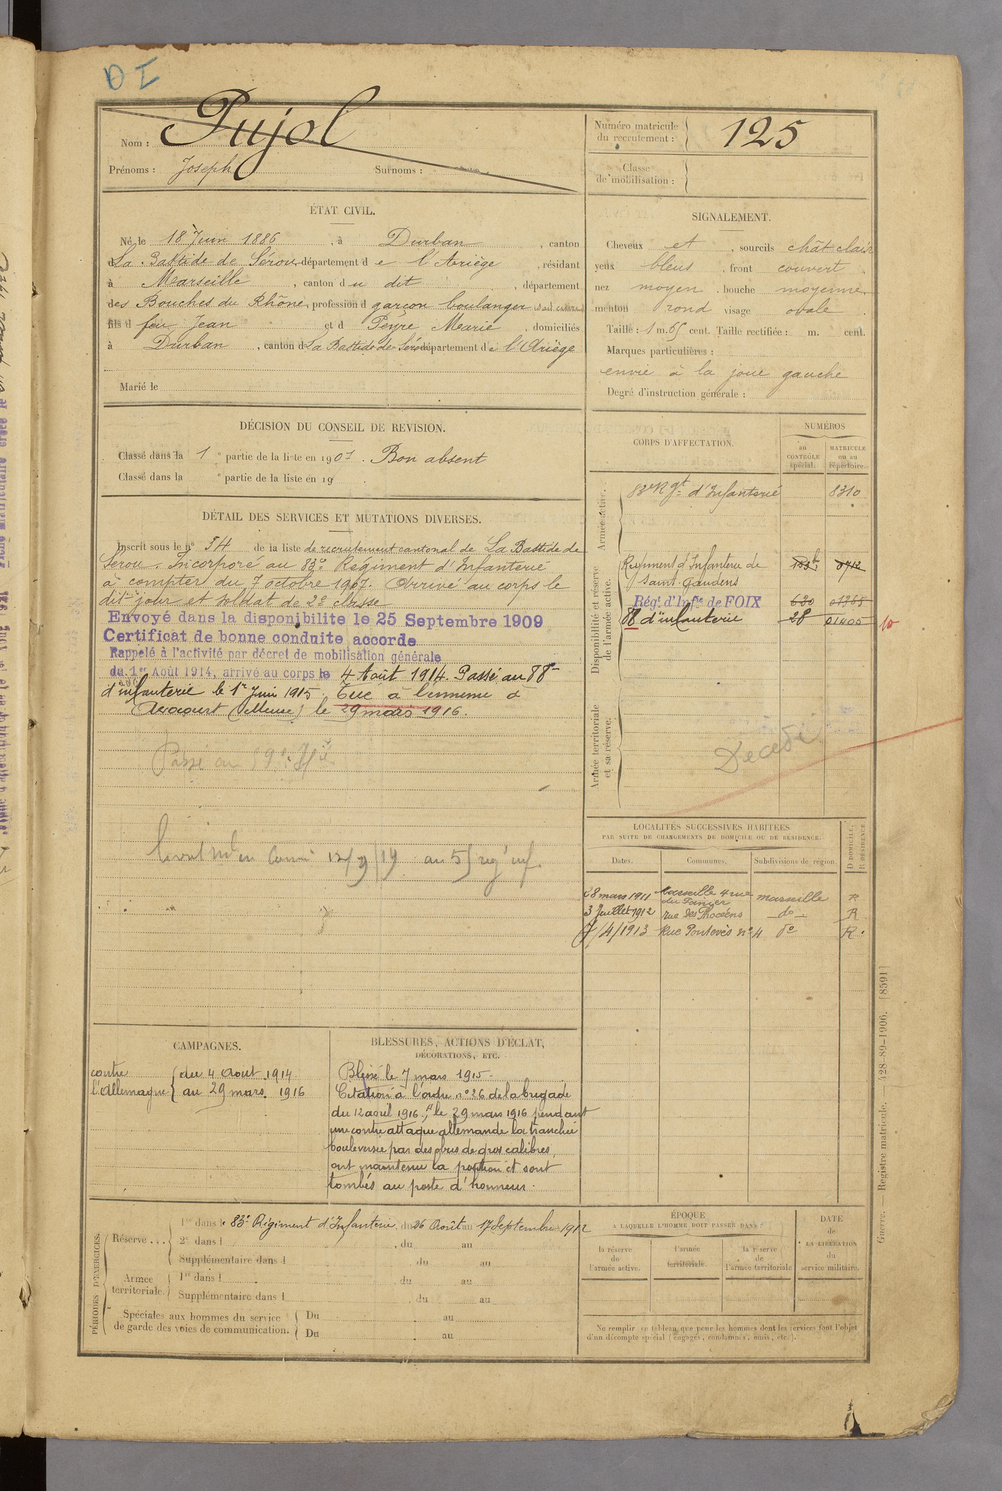 D I
Nom : Pujol
Prénoms : Joseph Surnoms :
Numéro matricule du recrutement : 125
Classe de mobilisation :
ÉTAT CIVIL.
Né le 18 Juin 1886, à Durban, canton
d La Bastide de Sérou, département de l'Ariège, résidant
à Marseille, canton du dit, département
des Bouches du Rhône, profession d garçon boulanger
fils d feu Jean et d Peyre Marie, domiciliés
à Durban, canton d La Bastide de Sérou département de l'Ariège
Marié le
SIGNALEMENT.
Cheveux et, sourcils chât clair
yeux bleus, front couvert.
nez moyen, bouche moyenne
menton rond visage ovale.
Taille : 1 m. 65 cent. Taille rectifiée : m. cent.
Marques particulières :
envie à la joue gauche
Degré d'instruction générale :
DÉCISION DU CONSEIL DE REVISION.
Classé dans la 1e partie de la liste en 1907. Bon absent
Classé dans la e partie de la liste en 19
DÉTAIL DES SERVICES ET MUTATIONS DIVERSES.
Inscrit sous le n° 54 de la liste de recrutement cantonal de La Bastide de
Sérou. Incorporé au 83e Régiment d'Infanterie
à compter du 7 octobre 1907. Arrivé au corps le
dit jour et soldat de 2e classe
Envoyé dans la disponibilite le 25 Septembre 1909
Certificat de bonne conduite accorde
Rappelé à l'activité par décret de mobilisation générale
du 1er Août 1914, arrivé au corps le 4 Août 1914. Passé au 88e
d'infanterie le 1er Juin 1915. Tué à l'ennemi à
(Meuse) le 29 mars 1916.
Passé au
12/9/19 au 5
Décédé
CORPS D'AFFECTATION.
NUMÉROS
AU CONTRÔLE spécial.
MATRICULE ou au répertoire.
Armée active.
83e Rgt d'Infanterie 8310
Disponibilité et réserve de l'armée active.
Régiment d'Infanterie de
Saint Gaudens
Rég. d'Inf.ie de FOIX 620 01265
88 d'infanterie 28 01405 10
Armée territoriale et sa réserve.
LOCALITÉS SUCCESSIVES HABITÉES
PAR SUITE DE CHANGEMENTS DE DOMICILE OU DE RÉSIDENCE.
Dates. Communes. Subdivisions de région. D DOMICILE. R RÉSIDENCE
28 mars 1911 Marseille 4 rue du Panier marseille R
3 Juillet 1912 rue des Phocéens do R
7/4/1913 Rue Pontevès n° 4 do R.
CAMPAGNES.
contre l'Allemagne
du 4 Août 1914
au 29 mars 1916
BLESSURES, ACTIONS D'ÉCLAT,
DÉCORATIONS, ETC.
Blessé le 7 mars 1915.
Citation à l'ordre n° 26 de la brigade
du 12 août 1916. "le 29 mars 1916 pendant
une contre attaque allemande la tranchée
bouleversée par des obus de gros calibres,
ont maintenu la position et sont
tombés au poste d'honneur.
PÉRIODES D'EXERCICES.
Réserve...
1re dans le 83e Régiment d'Infanterie, du 26 Août au 17 Septembre 1912
2e dans l , du au
Supplémentaire dans l du au
Armée territoriale.
1re dans l du au
Supplémentaire dans l du au
Spéciales aux hommes du service de garde des voies de communication.
Du au
Du au
ÉPOQUE
A LAQUELLE L'HOMME DOIT PASSER DANS :
la réserve de l'armée active.
l'armée territoriale.
la réserve de l'armée territoriale
DATE de LA LIBÉRATION du service militaire.
Ne remplir ce tableau que pour les hommes dont les services font l'objet
d'un décompte spécial (engagés, condamnés, omis, etc.).
Guerre. Registre matricule. 428-89-1906. [8591]